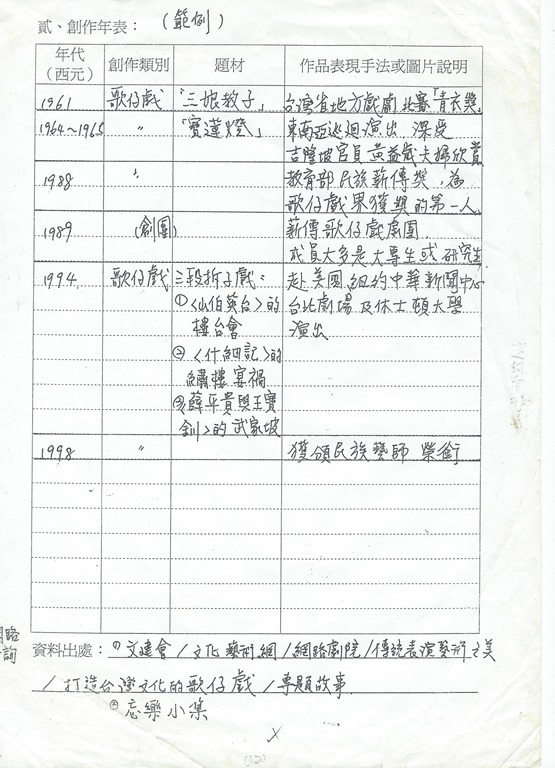 貳、創作年表：（範例）
年代（西元） 創作類別 題材 作品表現手法或圖片說明
1961 歌仔戲 「三娘教子」 台灣省地方戲劇比賽「青衣獎」
1964～1965 〃 「寶蓮燈」 東南亞巡迴演出 深受
吉隆坡官員黃益歲夫婦欣賞
1988 〃 教育部民族薪傳獎，為
歌仔戲界獲獎的第一人。
1989 (創團) 薪傳歌仔戲劇團
成員大多是大專生或研究生
1994 歌仔戲 三段折子戲： 赴美國紐約中華新聞中心
①〈山伯英台〉的 台北劇場及休士頓大學
樓台會 演出
②〈什細記〉的
繡樓宴禍
③〈薛平貴與王寶
釧〉的武家坡
1998 〃 獲頒民族藝師 榮銜
資料出處：①文建會/文化藝術網/網路劇院/傳統表演藝術之美
/打造台灣文化的歌仔戲/專題故事
②忘樂小集
(12)